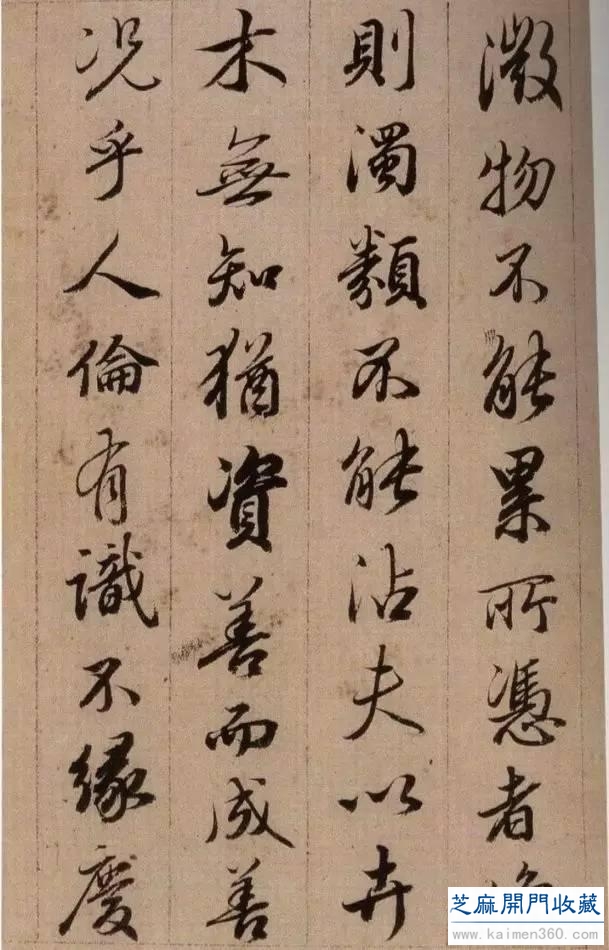 微物不能累所憑者
則濁類不能沾夫以卉
木無知猶資善而成善
况乎人倫有識不緣慶
芝麻開門收藏
www.kaimen360.com